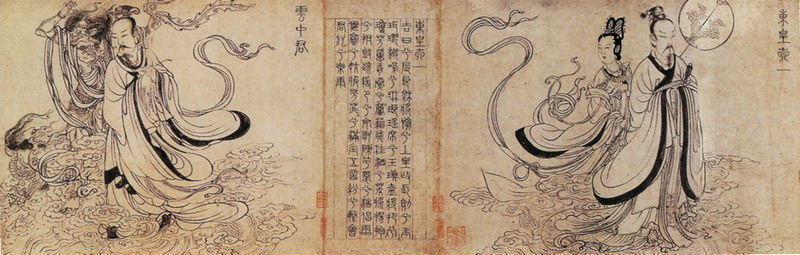 東皇太一
東皇太一
吉日兮辰良穆將愉兮上皇撫長劍兮玉
珥璆鏘鳴兮琳琅瑤席兮玉瑱盍將把兮
瓊芳蕙肴蒸兮蘭藉奠桂酒兮椒漿揚枹
兮拊鼓疏緩節兮安歌陳竽瑟兮浩倡靈
偃蹇兮姣服芳菲菲兮滿堂五音紛兮繁會
君欣欣兮樂康
雲中君